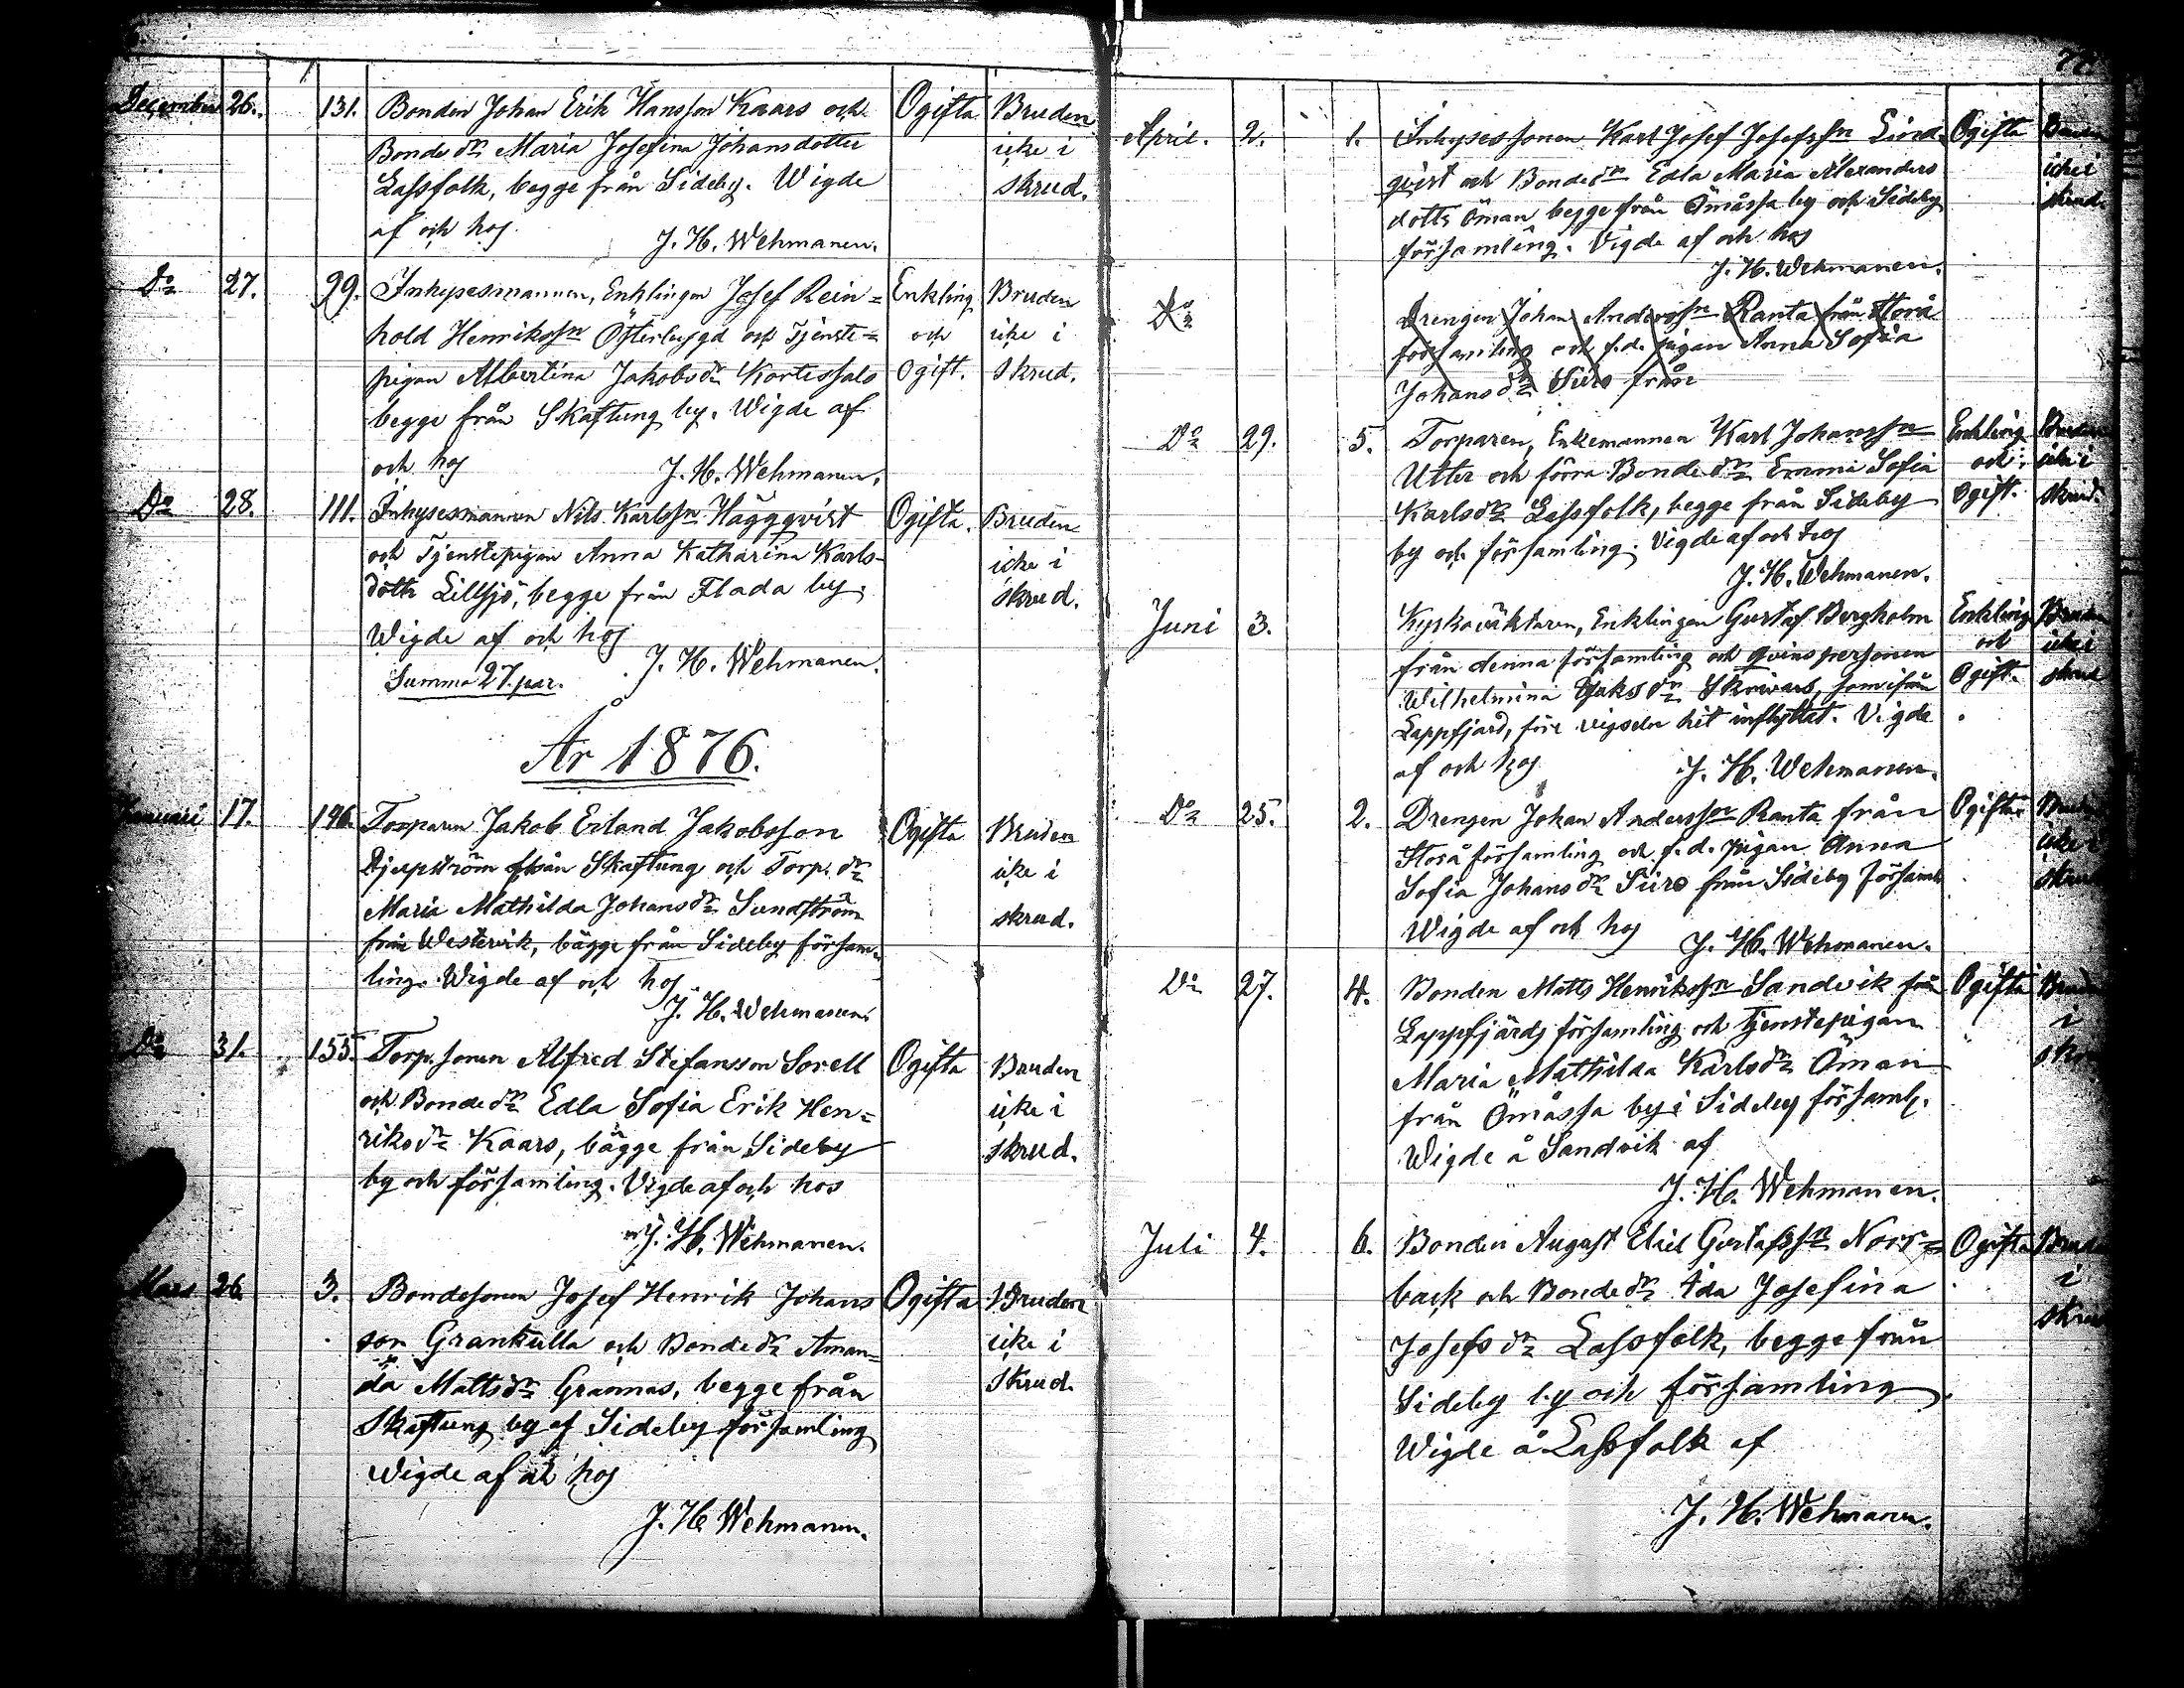 December 26. 131. Bonden Johan Erik Hansson Kaars och Ogifta Bruden
Bonde dr Maria Josefina Johansdotter icke i
Lassfolk, begge från Sideby. Wigde skrud.
af och hos
J. H. Wehmanen.
Do 27. 99. Inhysesmannen, Enklingen Josef Rein= Enkling Bruden
hold Henrikssn Österbygd och Tjenste= och icke i
pigan Albertina Jakobsdr Kortessalo ogift. skrud.
begge från Skaftung by. Wigde af
och hos J. H. Wehmanen.
Do 28. 111. Inhysesmannen Nils Karlssn Häggqvist Ogifta. Bruden
och Tjenstepigan Anna Katharina Karls- icke i
dottr Lillsjö, begge från Flada by. skrud.
Wigde af och hos
J. H. Wehmanen.
Summa 27. par.
År 1876.
Januari 17. 146. Torparen Jakob Erland Jakobsson Ogifta Bruden
Djupström från Skaftung och Torp. dr icke i
Maria Mathilda Johansdr Sundström skrud.
från Westervik, bägge från Sideby försam-
ling. Wigde af och hos
J. H. Wehmanen.
Do 31. 155. Torp. sonen Alfred Stefansson Sorell Ogifta Bruden
och Bonde dr Edla Sofia Erik Hen= icke i
riksdr Kaars, bägge från Sideby skrud.
by och församling. Vigde af och hos
J. H. Wehmanen.
Mars 26. 3. Bondesonen Josef Henrik Johans Ogifta Bruden
son Grankulla och Bonde dr Aman= icke i
da Mattsdr Grannas, begge från skrud.
Skaftung by af Sideby församling
Wigde af och hos
J. H. Wehmanen.
April. 2. 1. Inhysessonen Karl Josef Josefssn Lind- Ogifta Bruden
qvist och Bondedr Edla Maria Alexanders icke i
dottr Öman begge från Ömåssa by och Sideby skrud.
församling. Vigde af och hos
J. H. Wehmanen.
Do Drengen Johan Anderssn Ranta från Storå
församling och f.d. pigan Anna Sofia
Johansdr Siiro från
Do 29. 5. Torparen, Enkemannen Karl Johanssn Enkling Bruden
Utter och förra Bonde dr Emma Sofia och icke i
Karlsdr Lassfolk, begge från Sideby ogift. skrud.
by och församling. Vigde af och hos
J. H. Wehmanen.
Juni 3. Kyrkoväktaren, Enklingen Gustaf Bergholm Enkling Bruden
från denna församling och qvinspersonen och icke i
Wilhelmina dr Skrivars, som ifrån Ogift. skrud
Lappfjärd, före vigseln hit inflyttat. Vigde
af och hos J. H. Wehmanen.
Do 25. 2. Drengen Johan Anderssn Ranta från Ogifta Bruden
Storå församling och f.d. pigan Anna icke i
Sofia Johansdr Siiro från Sideby församl. skrud
Wigde af och hos
J. H. Wehmanen.
Do 27. 4. Bonden Matts Henrikssn Sandvik från Ogifta Bruden
Lappfjärds församling och tjenstepigan i
Maria Mathilda Karlsdr Öman skrud
från Ömåssa by i Sideby församl.
Wigde å Sandvik af
J. H. Wehmanen.
Juli 4. 6. Bonden August Eliel Gustafssn Norr= Ogifta Bruden
back och Bonde dr Ida Josefina i
Josefs dr Lassfolk, begge från skrud
Sideby by och församling.
Wigde å Lassfolk af
J. H. Wehmanen.